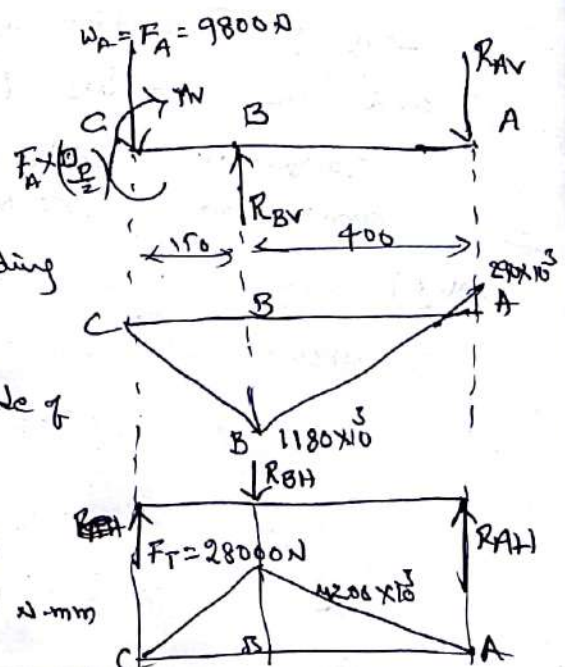 W_A = F_A = 9800 N
R_AV
C
B
A
F_A × (D_P/2)
R_BV
150
400
ding
290×10³
C
B
A
de of
B 1180×10³
R_BH
F_T = 28000 N
R_AH
4200×10³
N-mm
C
B
A